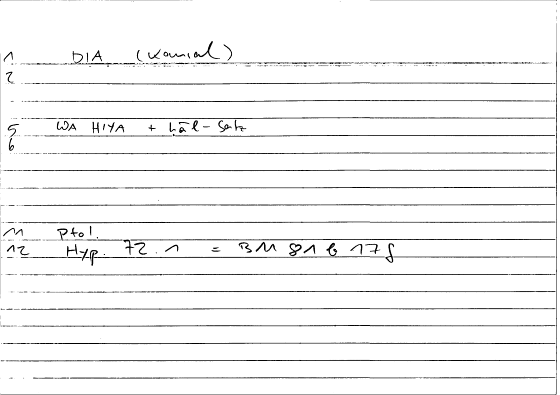 1 DIA (Kausal)
2
5 WA HIYA + Ḥāl-Satz
6
11 Ptol.
12 Hyp. 72.1 = BM 81 b 17 f